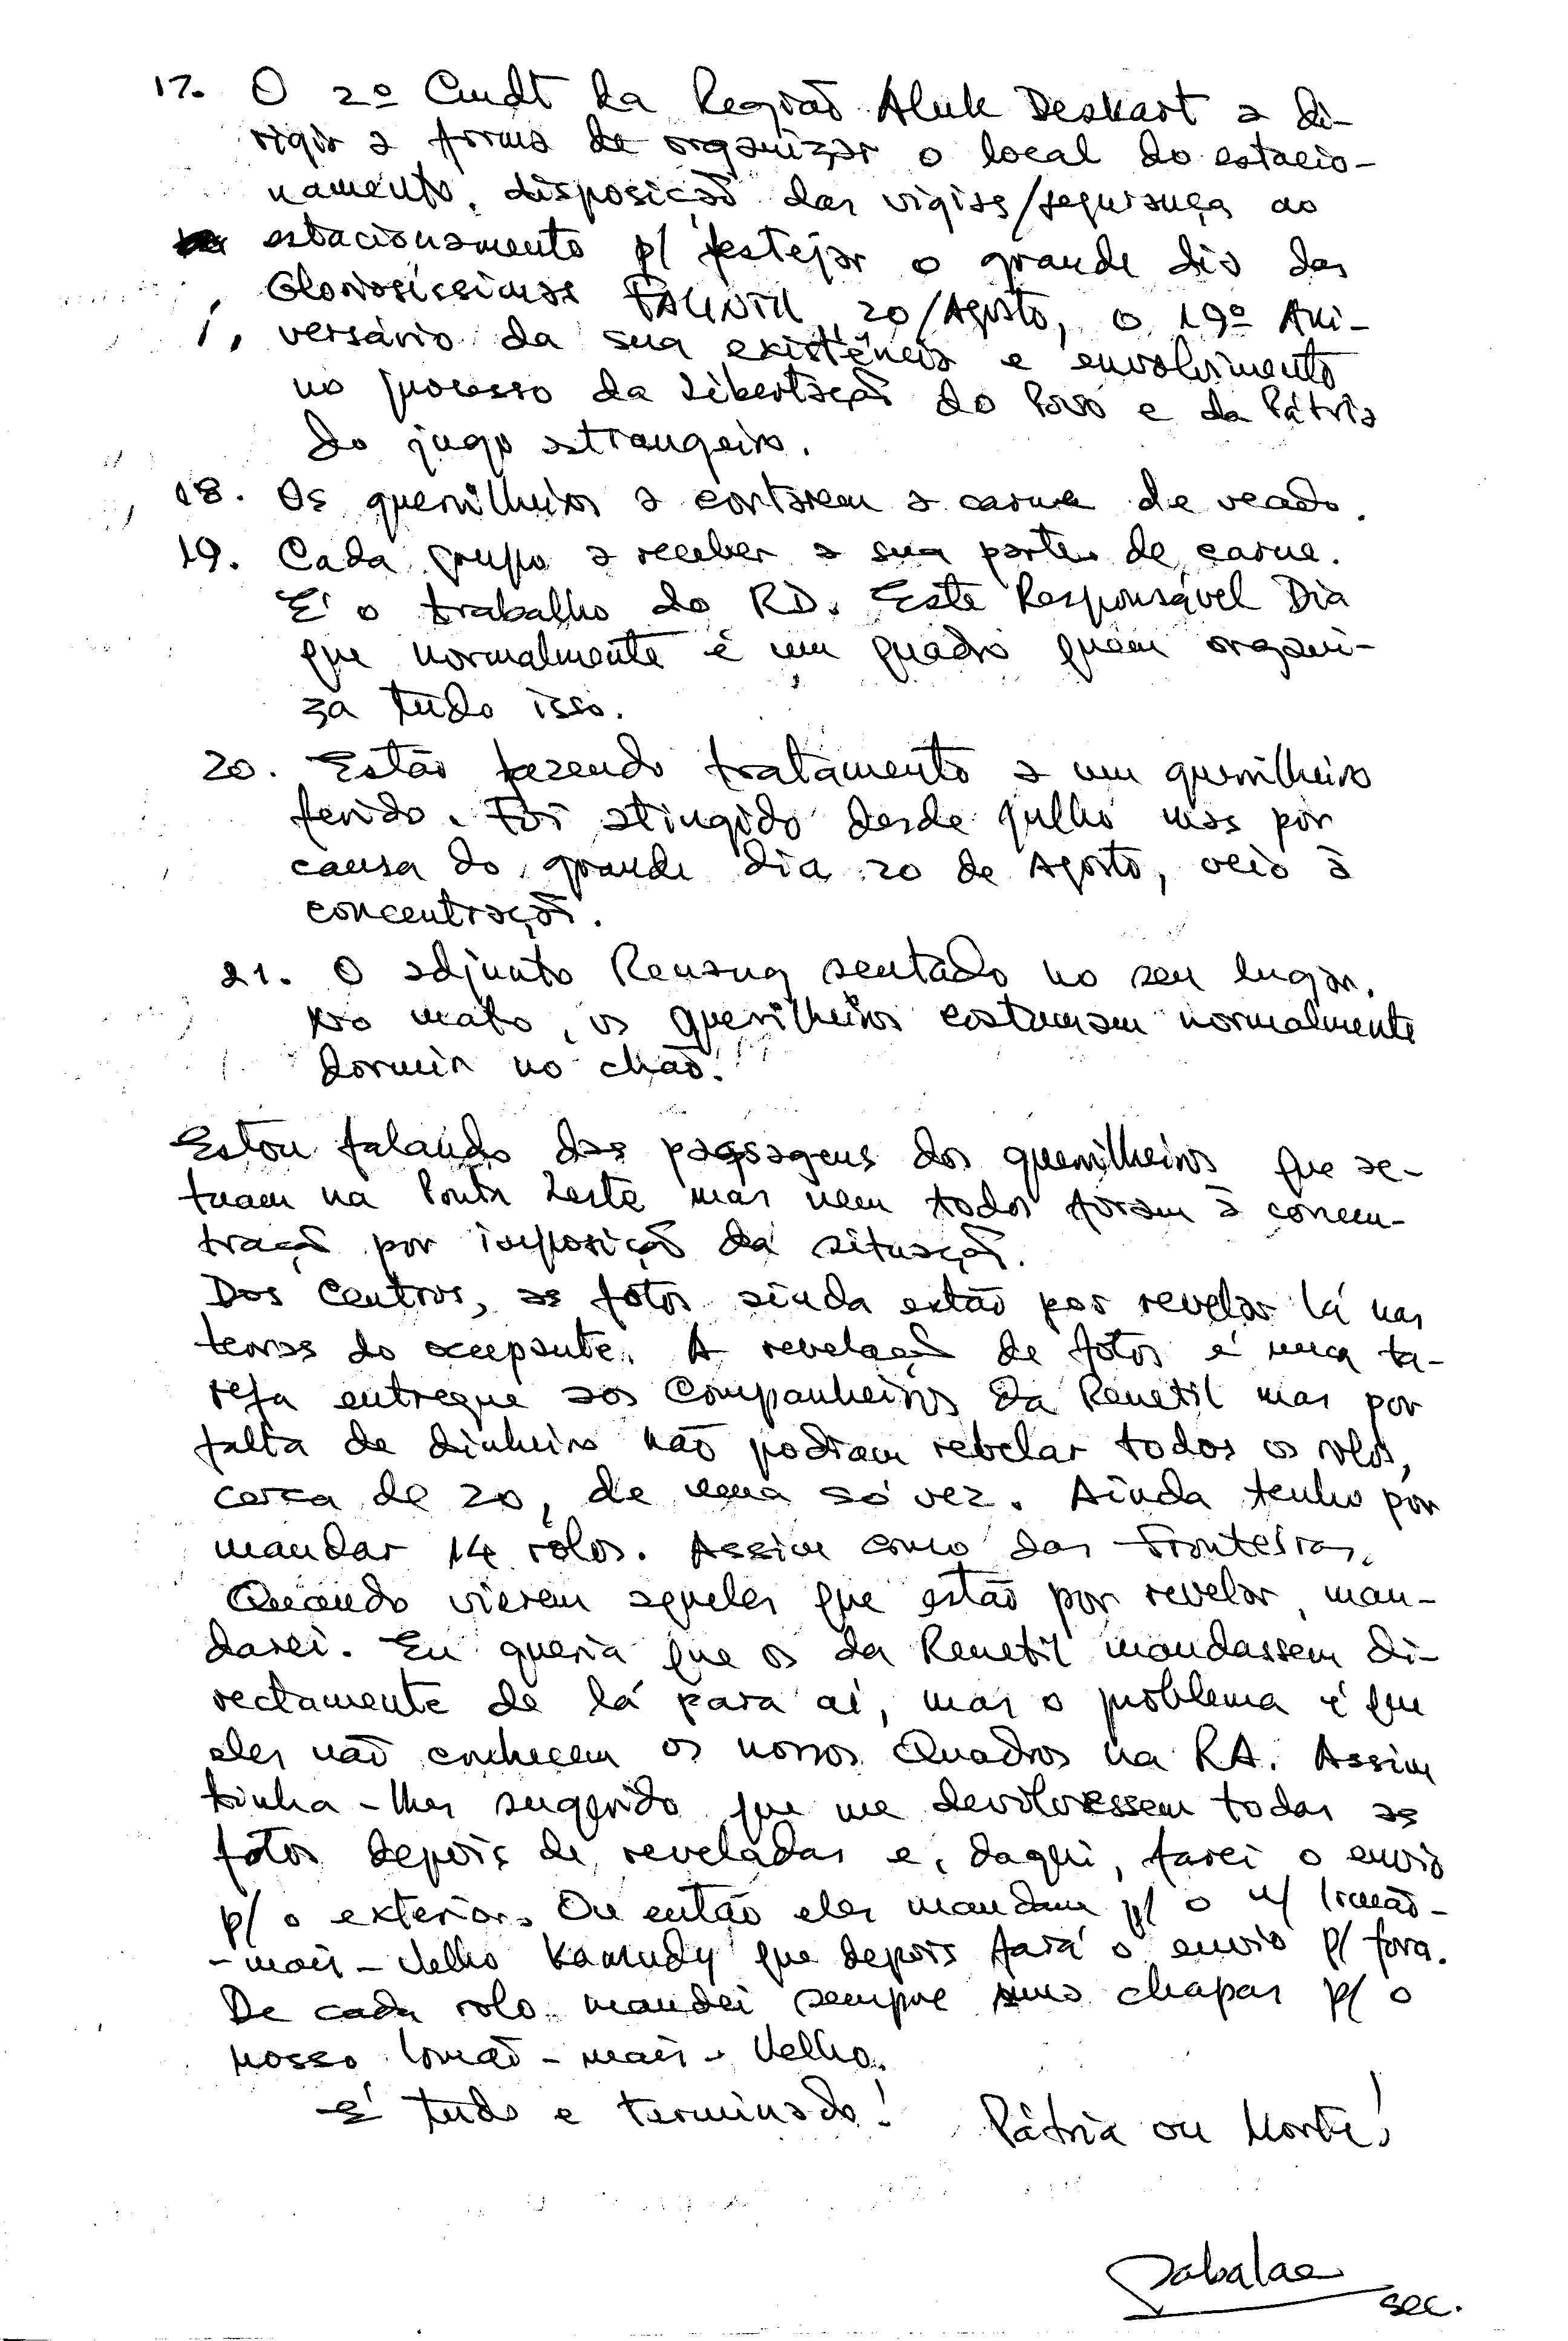 17. O 2º Cmdt da Região Aluk Deskart a di-
rigir a forma de organizar o local do estacio-
namento, disposição das vigias/segurança ao
estacionamento p/ festejar o grande dia das
Gloriosíssimas FALINTIL 20/Agosto, o 19º Ani-
versário da sua existência e envolvimento
no processo da Libertação do Povo e da Pátria
do jugo estrangeiro.
18. Os guerrilheiros a cortarem a carne de veado.
19. Cada grupo a receber a sua parte de carne.
É o trabalho do RD. Este Responsável Dia
que normalmente é um quadro quem organi-
za tudo isso.
20. Estão fazendo tratamento a um guerrilheiro
ferido. Foi atingido desde julho mas por
causa do grande dia 20 de Agosto, veio à
concentração.
21. O adjunto Renang sentado no seu lugar.
No mato, os guerrilheiros costumam normalmente
dormir no chão.
Estou falando das passagens dos guerrilheiros que ac-
tuam na Ponta Leste mas nem todos foram à concen-
tração por imposição da situação.
Dos Centros, as fotos ainda estão por revelar lá nas
terras do ocupante. A revelação de fotos é uma ta-
refa entregue aos Companheiros da Renetil mas por
falta de dinheiro não podiam revelar todos os rolos,
cerca de 20, de uma só vez. Ainda tenho por
mandar 14 rolos. Assim como das Fronteiras.
Quando vierem aqueles que estão por revelar, man-
darei. Eu queria que os da Renetil mandassem di-
rectamente de lá para aí, mas o problema é que
eles não conhecem os nossos Quadros na RA. Assim
tinha-lhes sugerido que me devolvessem todas as
fotos depois de reveladas e, daqui, farei o envio
p/ o exterior. Ou então eles mandam p/ o n/ Irmão-
-mais-Velho Kamudy que depois fará o envio p/ fora.
De cada rolo mandei sempre umas chapas p/ o
nosso Irmão-mais-Velho.
É tudo e terminado! Pátria ou Morte!
Sabalae
sec.